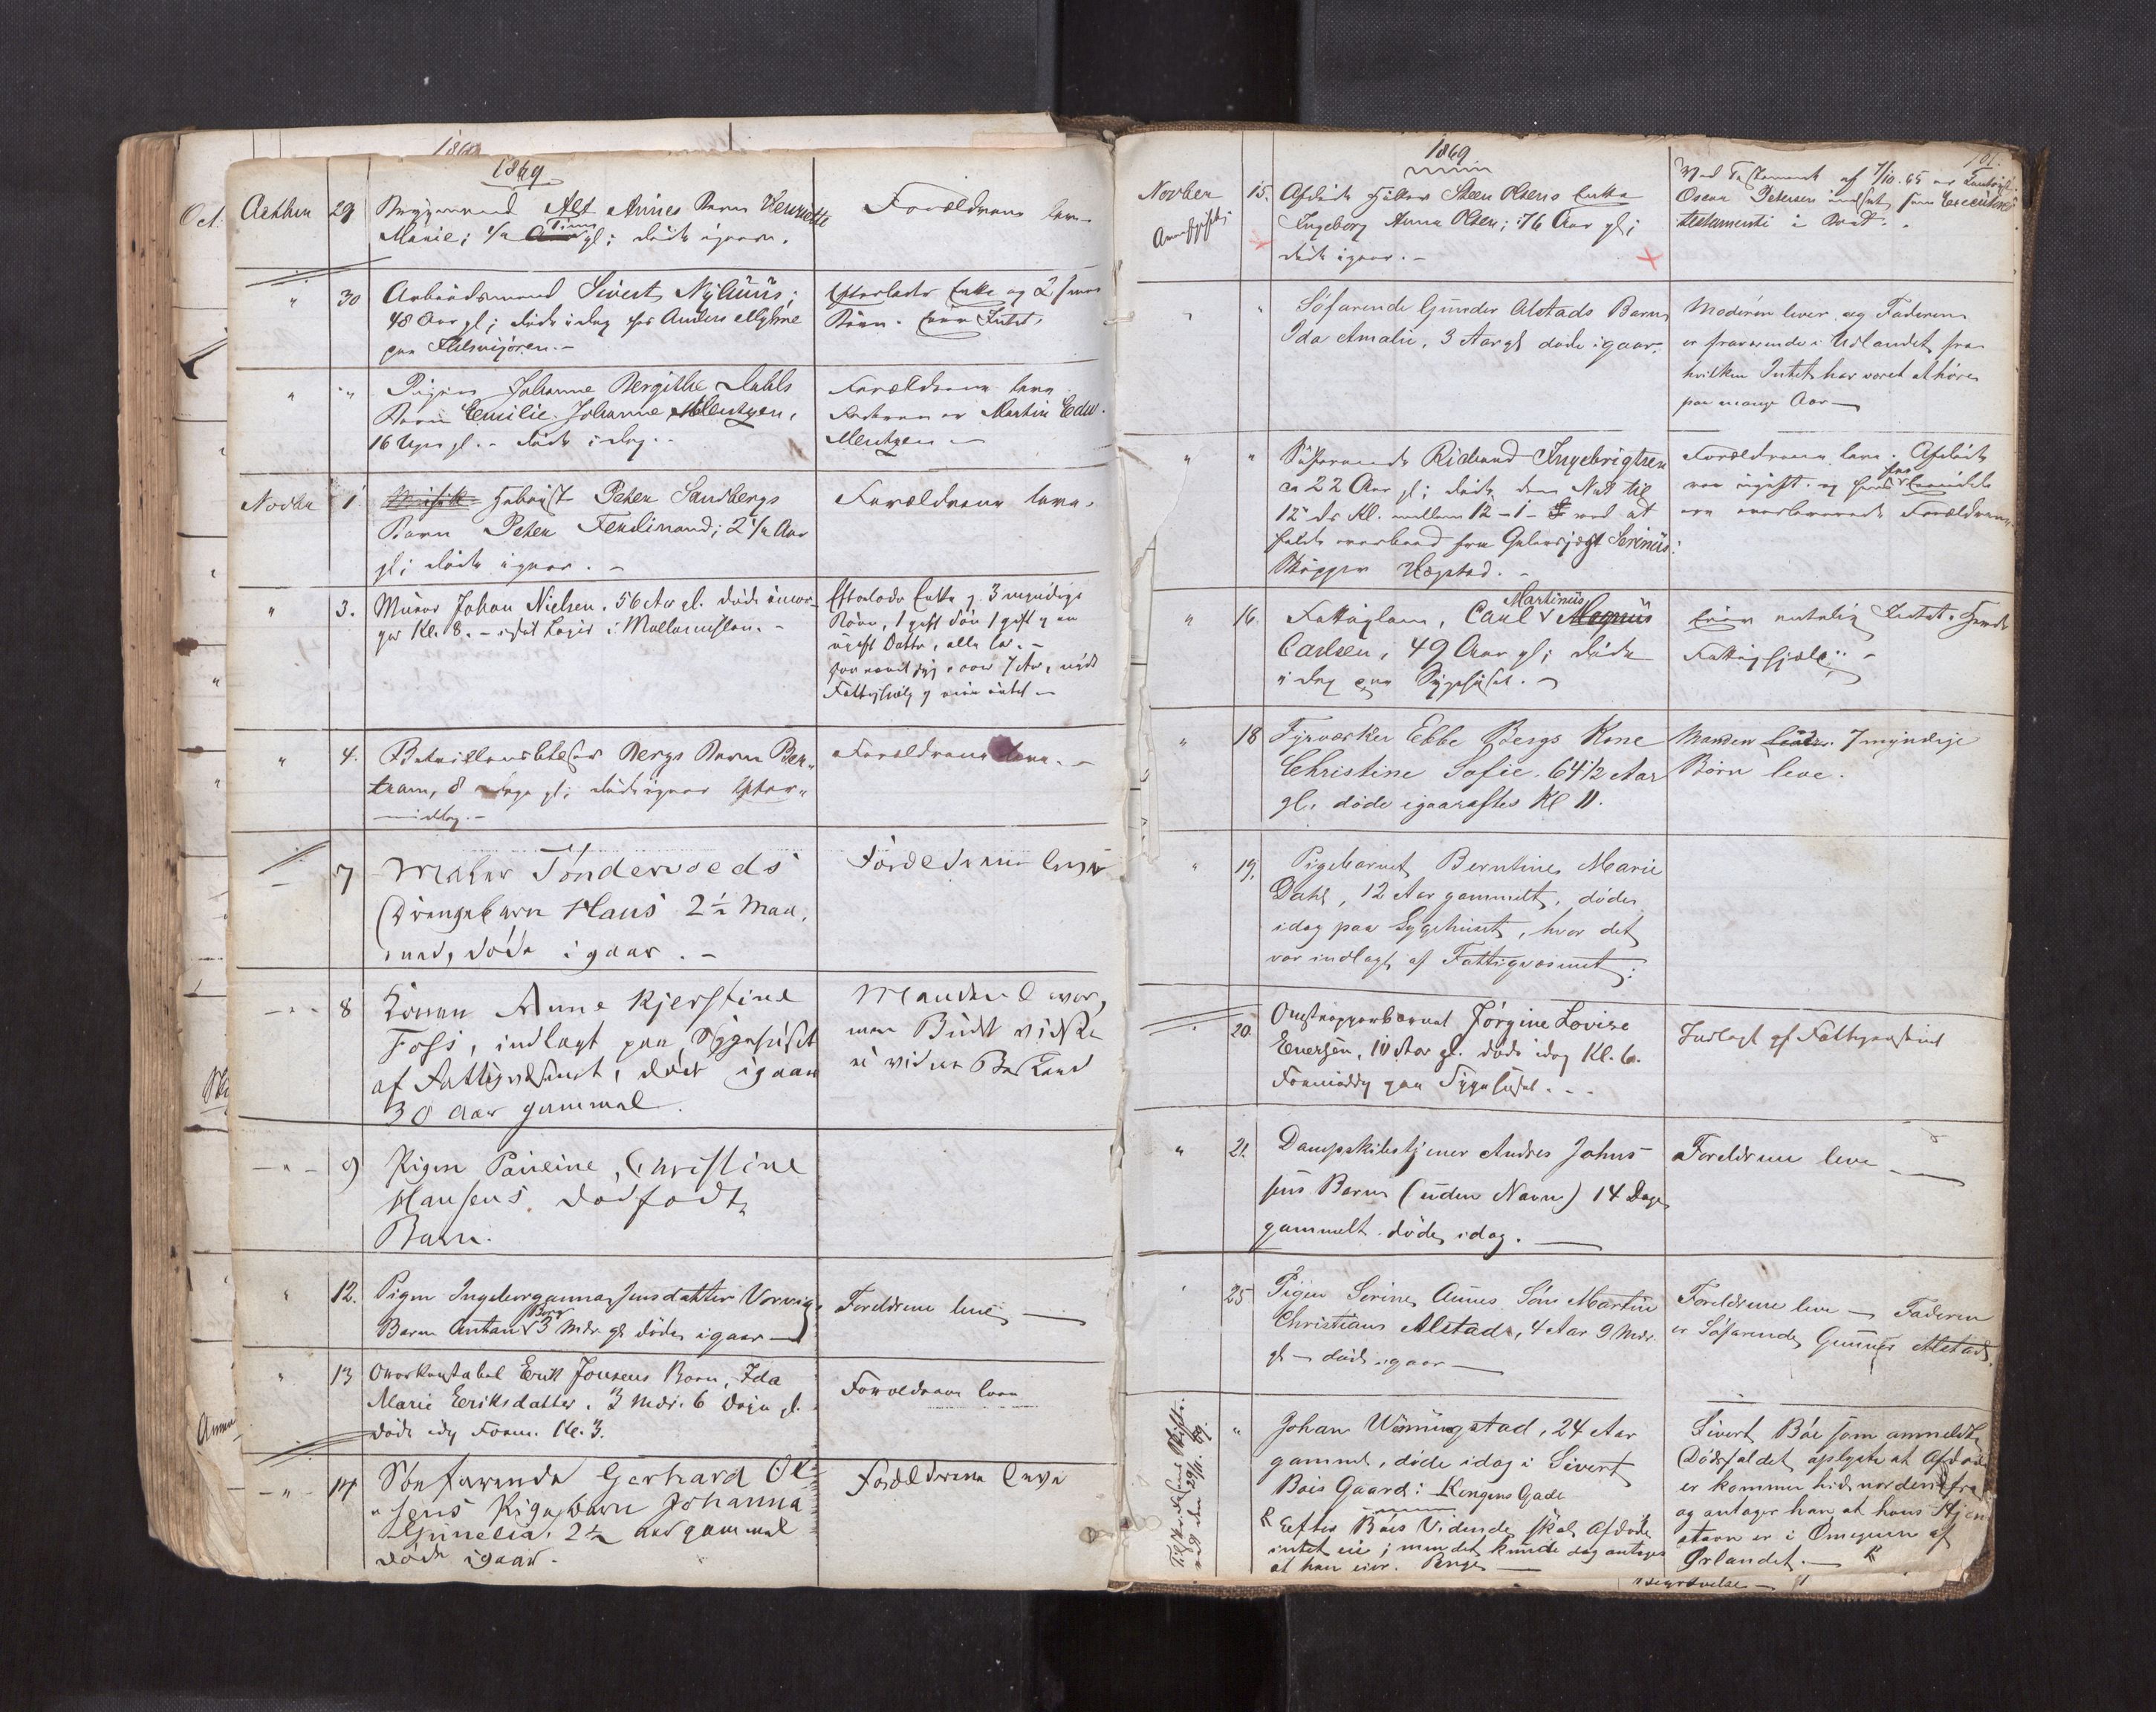 1869
Octbr 29 Byggmand Alf Arnes Barn Henriette
Marie; 1/2 Time gl; døde igaar.
Forældrene leve
" 30 Arbeidsmand Sivert Nyhuus;
48 Aar gl; døde idag hos Anders Myhre
paa Ihlsvigøren. -
Efterlader Enke og 2 smaa
Børn. Eier Intet.
" " Pigen Johanne Bergithe Dahls
Barn Emilie Johanne Mentzen,
16 Uger gl. - døde idag. -
Forældrene leve
Faderen er Martin Edw.
Mentzen
Novbr 1 Fabrikør Peter Sandbergs
Barn Peter Ferdinand; 2 1/2 Aar
gl; døde igaar. -
Forældrene leve.
" 3. Murer Johan Nielsen. 56 Aar gl. døde imor-
ges Kl. 8. - i sit Logis i Møllermisten. -
Efterlader Enke og 3 myndige
Børn, 1 gift Søn 1 gift og en
ugift Datter, alle her. -
har været syg i over 7 Aar, nydt
Fattighjælp og eier intet -
" 4. Bataillonsblæser Bergs Barn Ber-
tram, 8 Dage gl; døde igaar Efter-
middag. -
Forældrene leve. -
7 Maler Tønderoeds
Drengebarn Hans 2 1/2 Maa-
ned, døde igaar. -
Forældrene lever
- " - 8 Konen Anne Kjerstine
Foss, indlagt paa Sygehuset
af Fattigvæsenet, døde igaar
30 Aar gammel.
Manden lever,
men Budet vidste
ei viden Beskeed
- " - 9 Pigen Pauline, Christine
Hansens dødfødte
Barn.
" 12. Pigen Ingeborganna Jensdatter Vorvigs
Barn Anton Berg 3 Mdr. gl døde igaar -
Foreldrene leve -
" 13 Overkonstabel Erik Jonsens Barn, Ida
Marie Eriksdatter. 3 Mdr. 6 Dage gl.
døde idag Form. Kl. 3.
Forældrene leve
- " - 14 Søefarende Gerhard Ol-
sens Pigebarn Johanna
Gunelia. 2 1/2 Aar gammel
døde igaar.
Forældrene leve
1869
101.
Novber 15. Afdøde Steen Olsens Enke
Ingeborg Anna Olsen; 76 Aar gl;
døde igaar. -
Ved Testament af 7/10. 65 er
Oscar Petersen indsat som Executor
testamenti i Boet.
" " Søfarende Gunder Alstads Barn
Ida Amalie, 3 Aar gl døde igaar.
Moderen lever og Faderen
er fraværende i Udlandet fra
hvilken Intet har været at høre
paa mange Aar -
" " Søfarende Richard Ingebrigtsen
ca 22 Aar gl; døde den Nat til
12te ds Kl. mellem 12 - 1 - ved at
falde overbord fra Galeasjagt Serinius
Skipper Hegstad. -
Forældrene leve. Afdøde
var ugift. og hans eneste
ere overlevende Forældrene.
" 16. Fattiglem, Carl Martinius Magnus
Carlsen, 49 Aar gl; døde
idag paa Sygehuset. -
Eier rimelig Intet. Havde
Fattighjælp. -
" 18 Fyrværker Ebbe Bergs Kone
Christine Sofie. 64 1/2 Aar
gl. døde igaaraftes Kl 11.
Manden lever. 7 myndige
Børn leve.
" 19. Pigebarnet Berntine Marie
Dahl, 12 Aar gammelt, døde
idag paa Sygehuset, hvor det
var indlagt af Fattigvæsenet.
" 20. Omstripperbarnet Jørgine Lovise
Evensen, 10 Aar gl. døde idag Kl. 6.
Formiddag paa Sygehuset. - -
Indlagt af Fattigvæsenet
" 21. Dampskibstjener Andres Johns-
sens Barn (uden Navn) 14 Dage
gammelt døde idag. -
Foreldrene leve -
" 25 Pigen Serine Aunes Søn Martin
Christians Alstad, 4 Aar 9 Mdr.
gl - døde igaar -
Foreldrene leve - Faderen
er Søfarende Gunner Alstad.
" Johan Winningstad, 24 Aar
gammel, døde idag i Sivert
Bøis Gaard i Kongens Gade
Efter Bøis Vidende skal Afdøde
intet eie; men det kunde dog antages
at han eier. Penge -
Sivert Bøe som anmeldte
Dødsfaldet oplyste at Afdøde
er kommen hid nordenfra
og antager han, at hans Hjem-
stavn er i Omegnen af
Ørlandet. -
Begravelse -